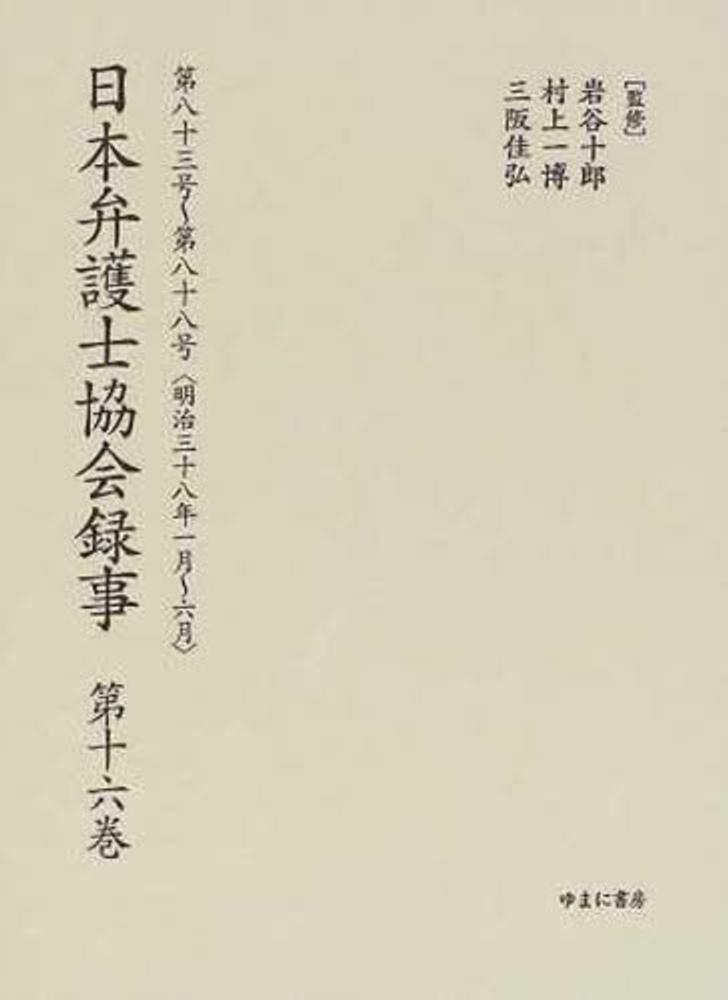 [監修]
岩谷十郎
村上一博
三阪佳弘
第八十三号～第八十八号〈明治三十八年一月～六月〉
日本弁護士協会録事 第十六巻
ゆまに書房